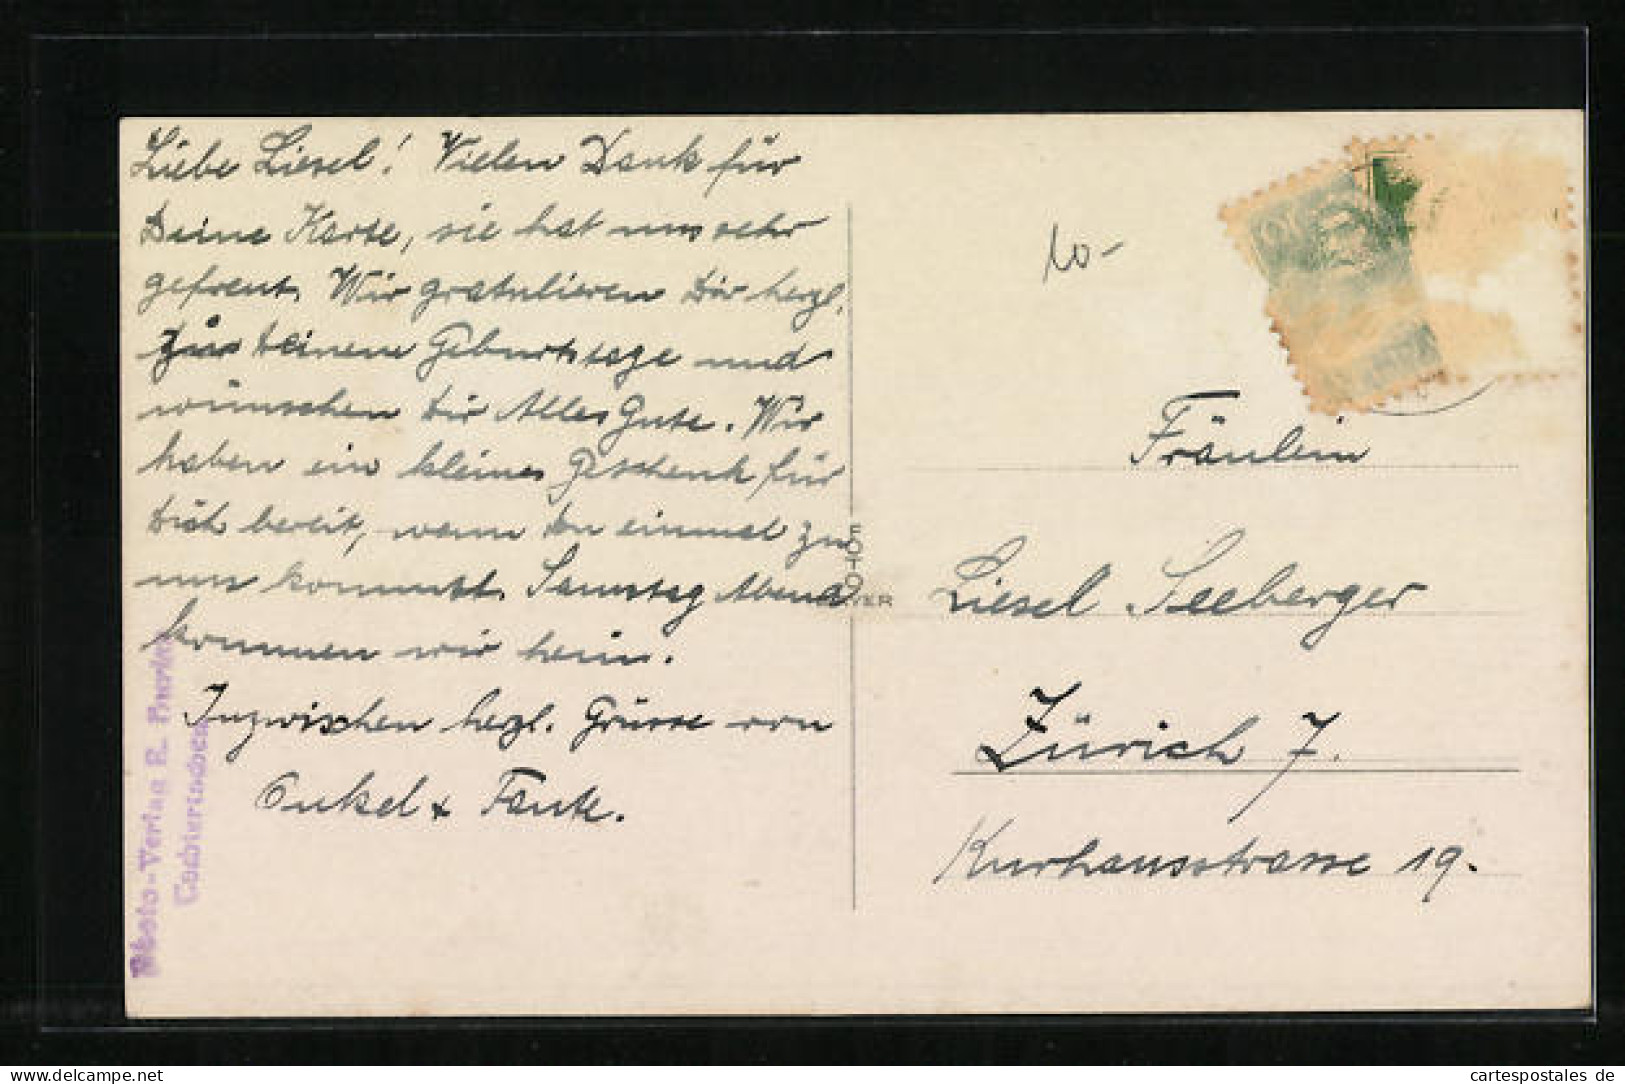 Liebe Liesel! Vielen Dank für
Deine Karte, sie hat uns sehr
gefreut. Wir gratulieren Dir herzl.
zu Deinem Geburtstage und
wünschen Dir Alles Gute. Wir
haben ein kleines Geschenk für
Dich bereit, wenn Du einmal zu
uns kommst. Samstag Abend
kommen wir heim.
Inzwischen herzl. Grüsse von
Onkel & Tante.
Photo-Verlag R.
Tschiertschen
FOTO
10-
20
Fräulein
Liesel Seeberger
Zürich 7.
Kurhausstrasse 19.
My Postcard
cartespostales de